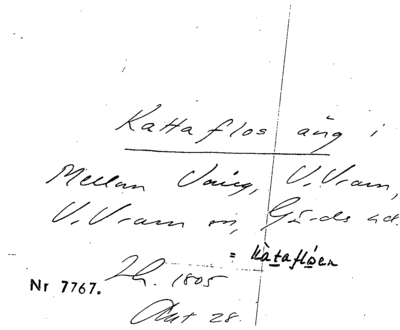 Kattaflos äng i
Mellan Vång, V. Vram,
V. Vram sn, Gärds hd.
= kàtaflóen
Nr 7767. Lh. 1805
Akt 28.